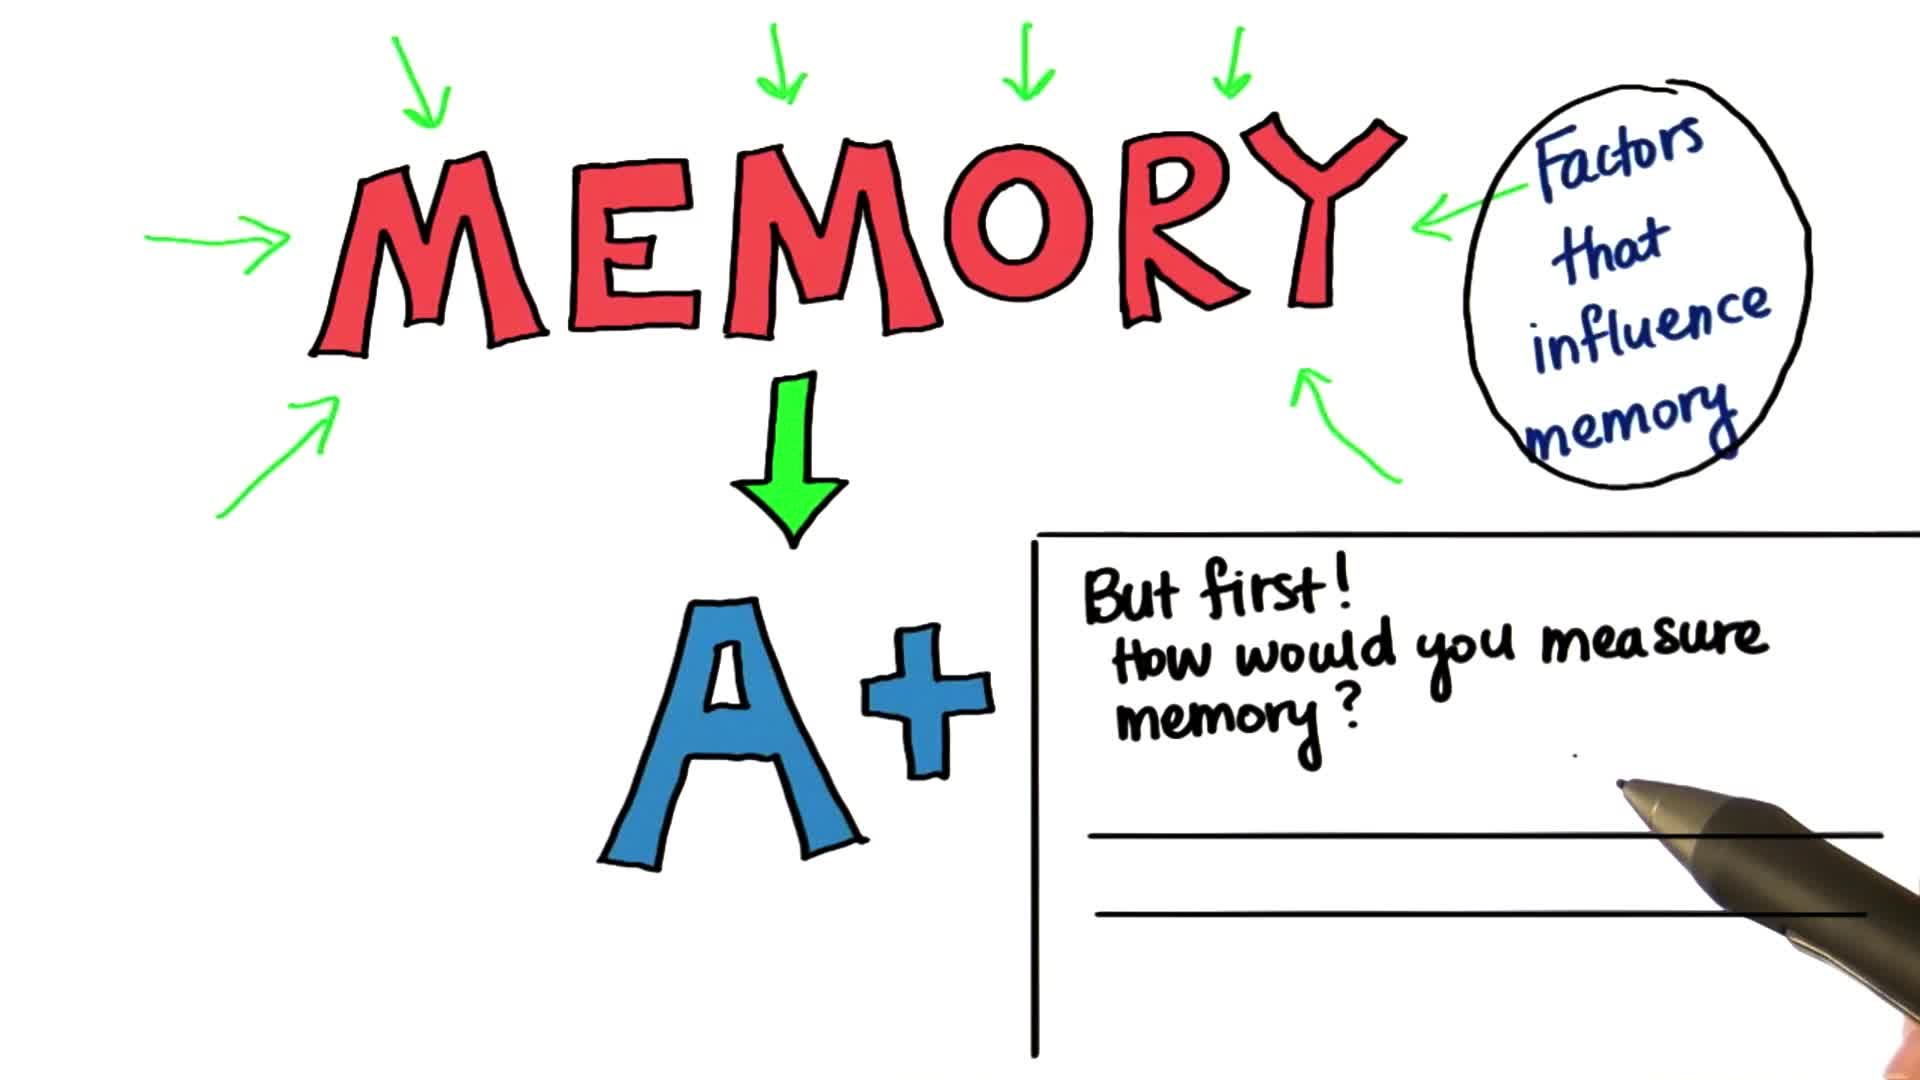 MEMORY
Factors
that
influence
memory
A+
But first!
How would you measure
memory?